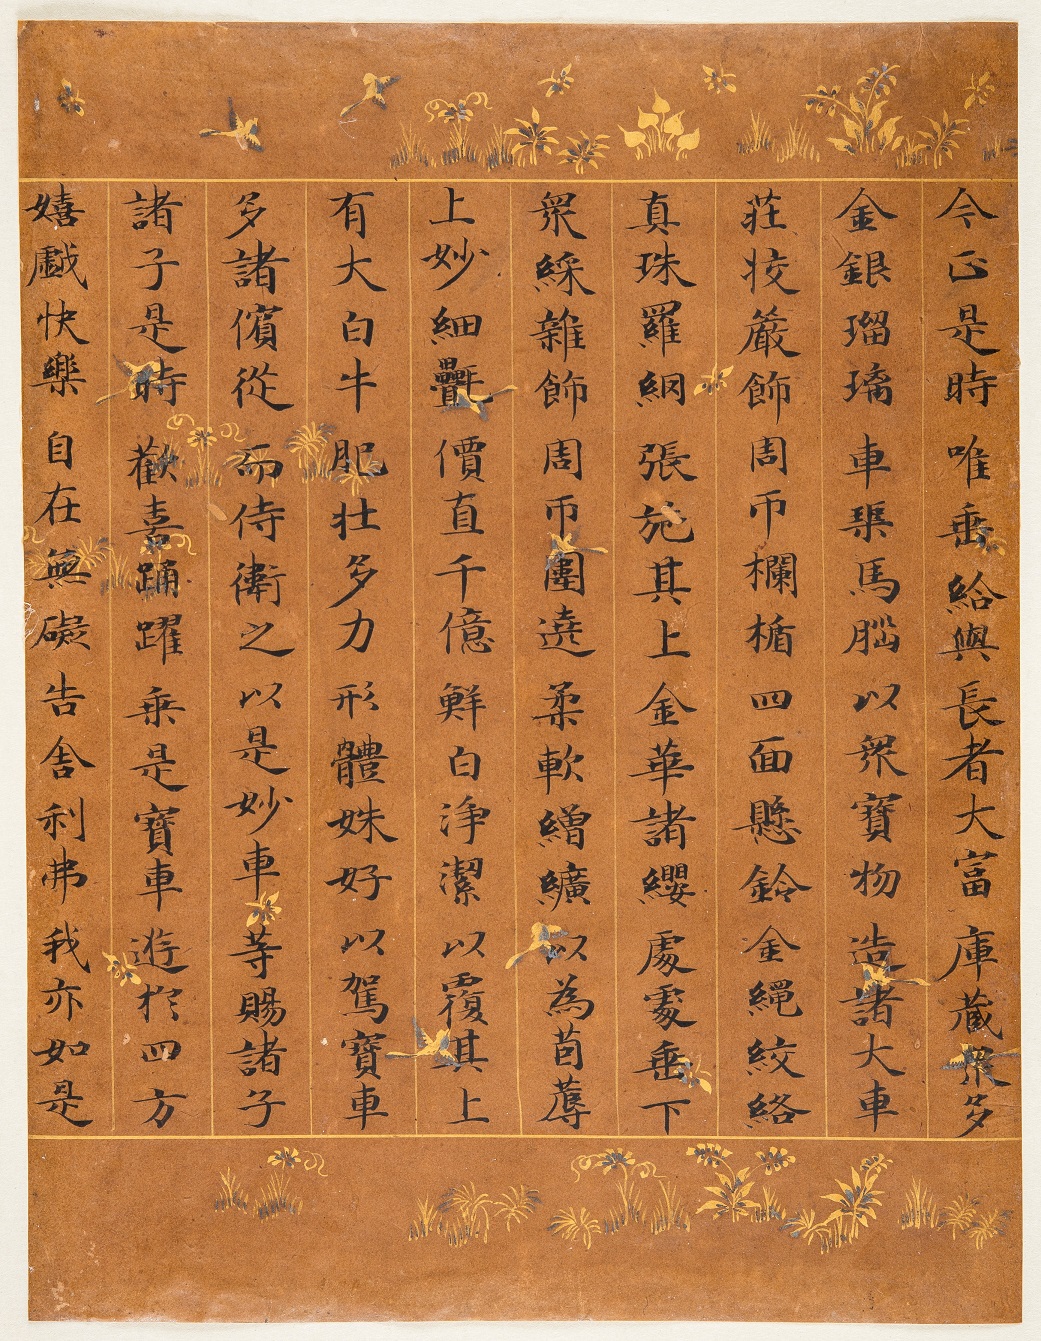 今正是時唯垂給與長者大富庫蔵衆多
金銀瑠璃車𤦲馬腦以衆寶物造諸大車
莊挍嚴飾周帀欄楯四面懸鈴金繩絞絡
真珠羅網張施其上金華諸纓處處垂下
衆綵雜飾周帀圍遶柔軟繒纊以為茵蓐
上妙細疊價直千億鮮白淨潔以覆其上
有大白牛肥壯多力形體姝好以駕寶車
多諸儐從而侍衛之以是妙車等賜諸子
諸子是時歡喜踊躍乘是寶車遊於四方
嬉戲快樂自在無礙告舎利弗我亦如是